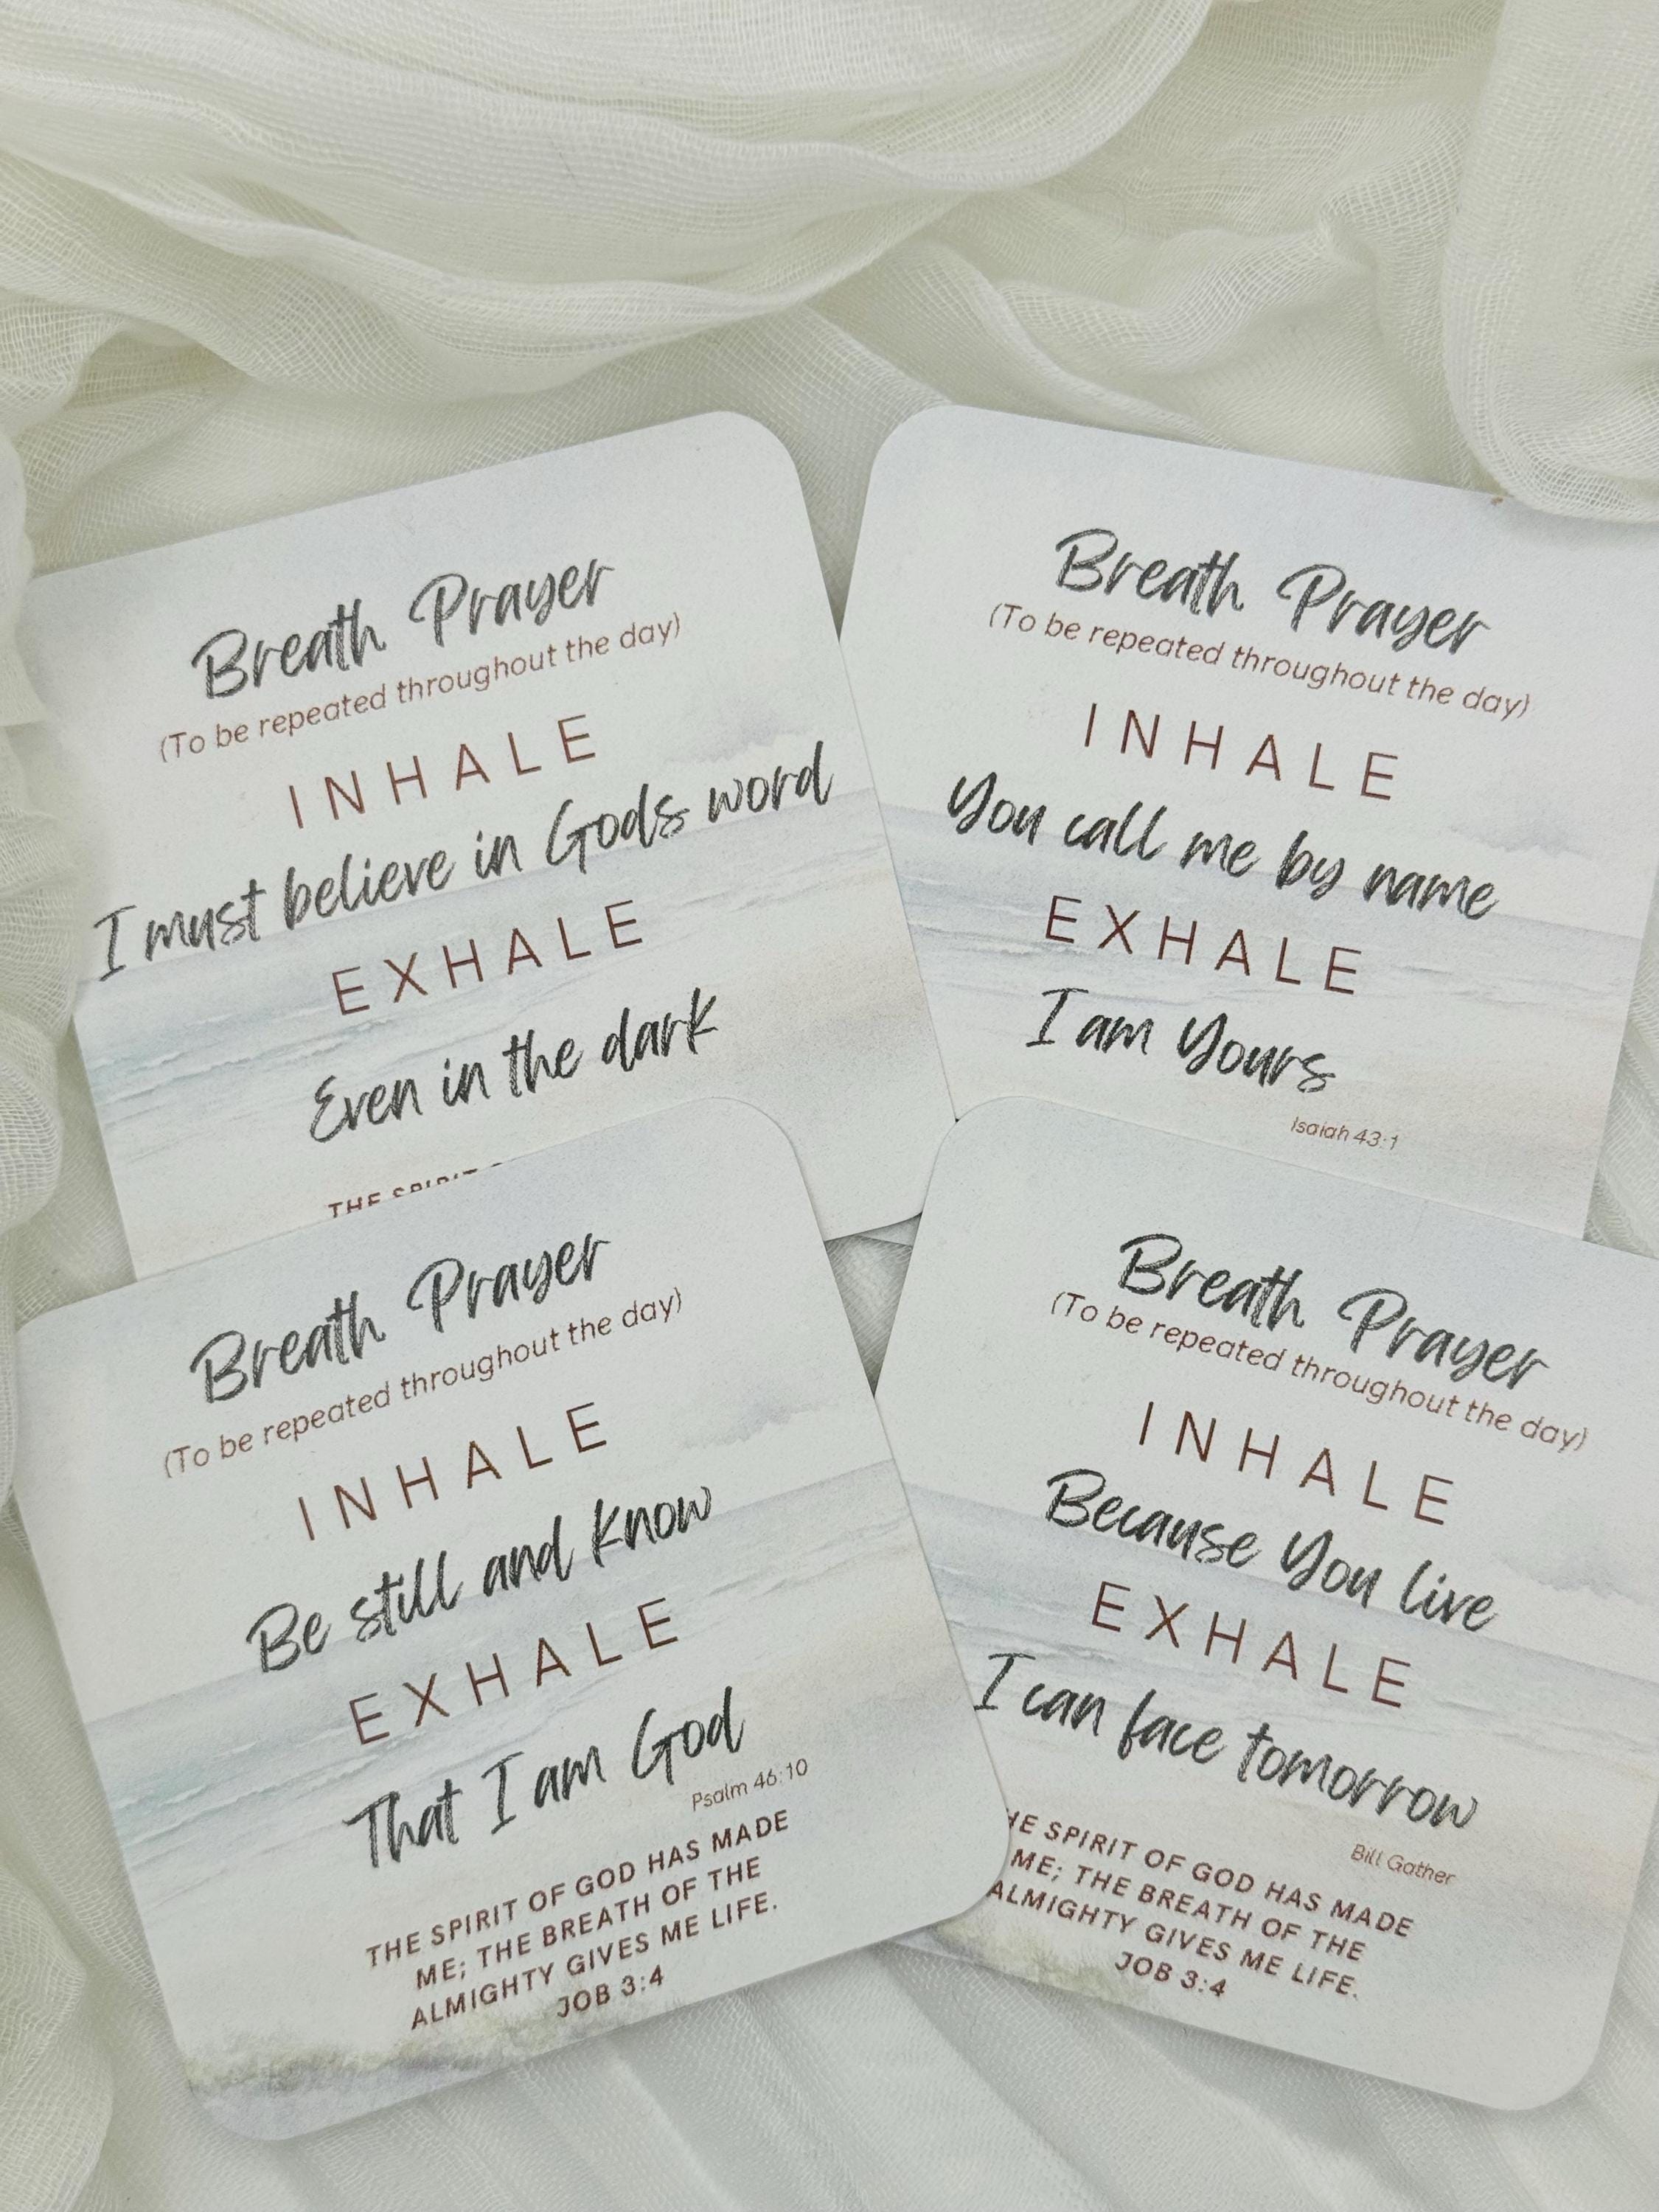 Breath Prayer
(To be repeated throughout the day)
INHALE
I must believe in Gods word
EXHALE
Even in the dark
THE SPIRIT
Breath Prayer
(To be repeated throughout the day)
INHALE
You call me by name
EXHALE
I am Yours
Isaiah 43:1
Breath Prayer
(To be repeated throughout the day)
INHALE
Be still and know
EXHALE
That I am God
Psalm 46:10
THE SPIRIT OF GOD HAS MADE
ME; THE BREATH OF THE
ALMIGHTY GIVES ME LIFE.
JOB 3:4
Breath Prayer
(To be repeated throughout the day)
INHALE
Because You live
EXHALE
I can face tomorrow
Bill Gather
HE SPIRIT OF GOD HAS MADE
ME; THE BREATH OF THE
ALMIGHTY GIVES ME LIFE.
JOB 3:4